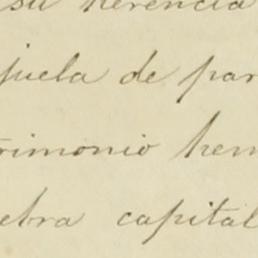 su herencia
juela de par
rimonio hem
ebra capital